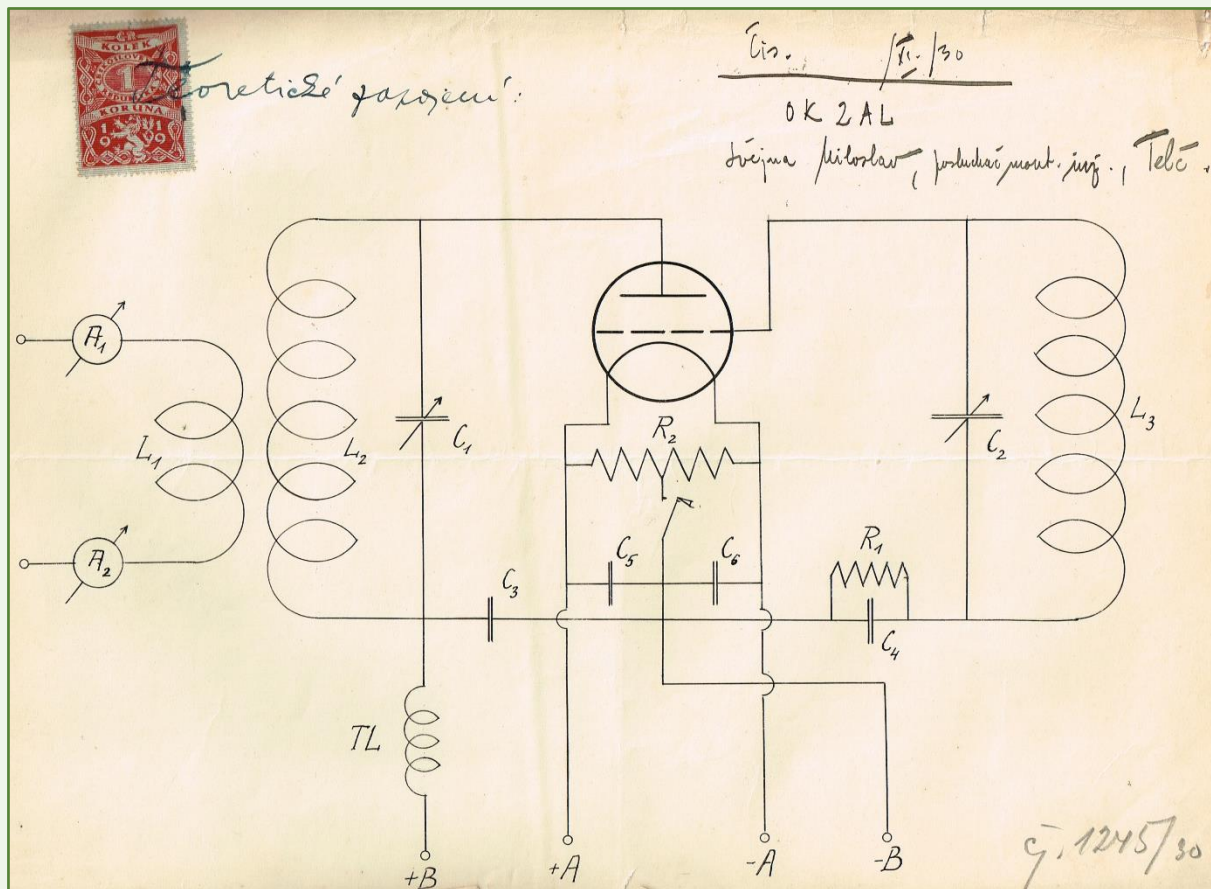 KOLEK
1
KORUNA
19 19
Teoretické zapojení:
Čís. /XI./30
OK 2AL
Švejna Miloslav, posluchač mont. inž., Telč.
A₁
A₂
L₁
L₂
C₁
R₂
C₂
L₃
C₅
C₆
R₁
C₃
C₄
TL
+B
+A
-A
-B
čj. 1245/30